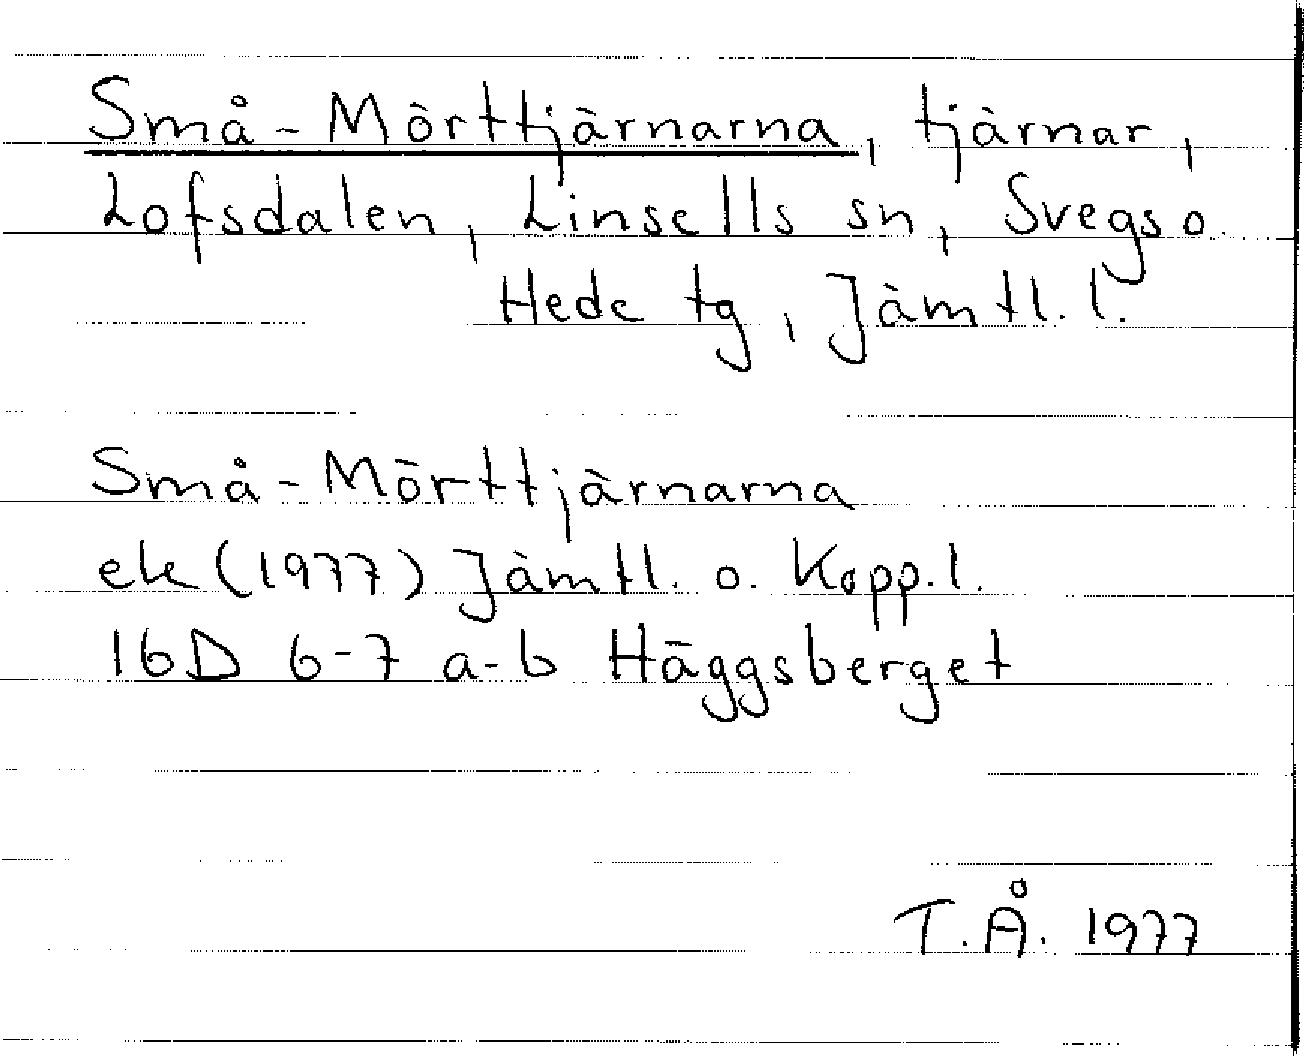 Små-Mörttjärnarna, tjärnar,
Lofsdalen, Linsells sn, Svegs o.
Hede tg, Jämtl. l.
Små-Mörttjärnarna
ek (1977) Jämtl. o. Kopp. l.
16D 6-7 a-b Häggsberget
T.Å. 1977